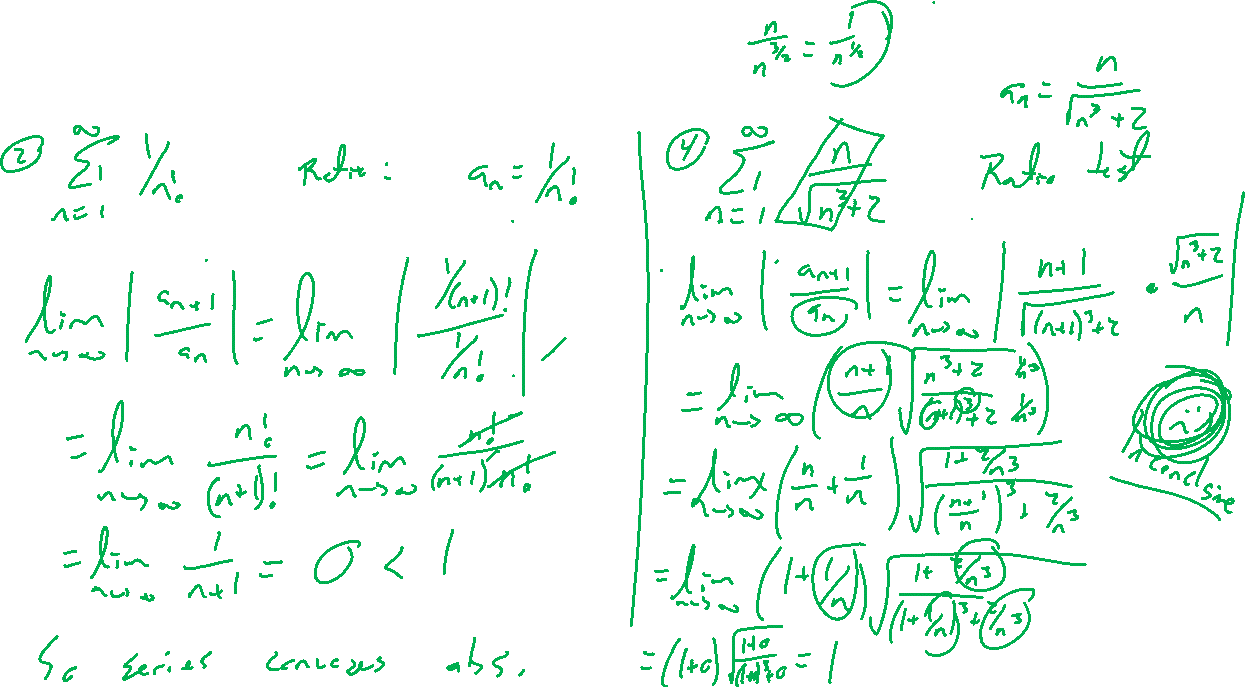 ② ∑_{n=1}^{∞} 1/n! Ratio: a_n = 1/n!
lim_{n→∞} |a_{n+1}/a_n| = lim_{n→∞} |(1/(n+1)!)/(1/n!)|
= lim_{n→∞} n!/(n+1)! = lim_{n→∞} n!/((n+1) n!)
= lim_{n→∞} 1/(n+1) = 0 < 1
So series converges abs.
n/n^{3/2} = 1/n^{1/2}
a_n = n/√(n^3+2)
④ ∑_{n=1}^{∞} n/√(n^3+2) Ratio test
lim_{n→∞} |a_{n+1}/a_n| = lim_{n→∞} |(n+1)/√((n+1)^3+2) • √(n^3+2)/n|
= lim_{n→∞} ((n+1)/n √((n^3+2)/((n+1)^3+2) (1/n^3)/(1/n^3)))
= lim_{n→∞} (n/n + 1/n) √((1+2/n^3)/(((n+1)/n)^3+2/n^3))
= lim_{n→∞} (1+1/n) √((1+2/n^3)/((1+1/n)^3+2/n^3))
= (1+0) √((1+0)/((1+0)^3+0)) = 1